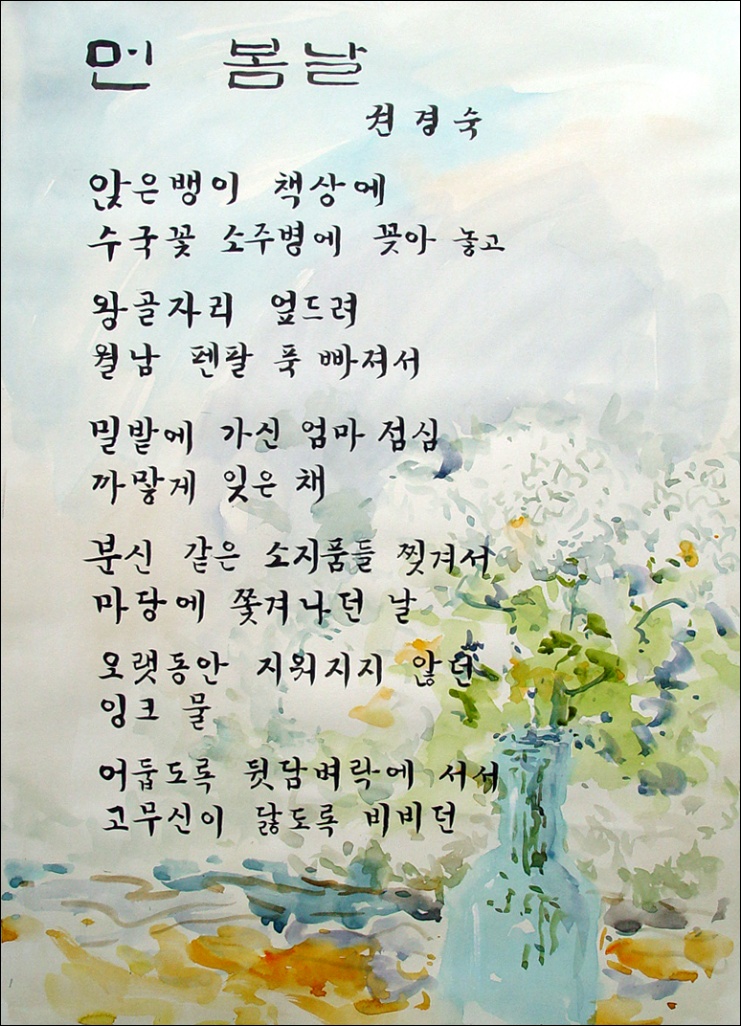 먼 봄날
권경숙
앉은뱅이 책상에
수국꽃 소주병에 꽂아 놓고
왕골자리 엎드려
월남 펜팔 푹 빠져서
밀밭에 가신 엄마 점심
까맣게 잊은 채
분신 같은 소지품들 찢겨서
마당에 쫓겨나던 날
오랫동안 지워지지 않던
잉크 물
어둡도록 뒷담벼락에 서서
고무신이 닳도록 비비던